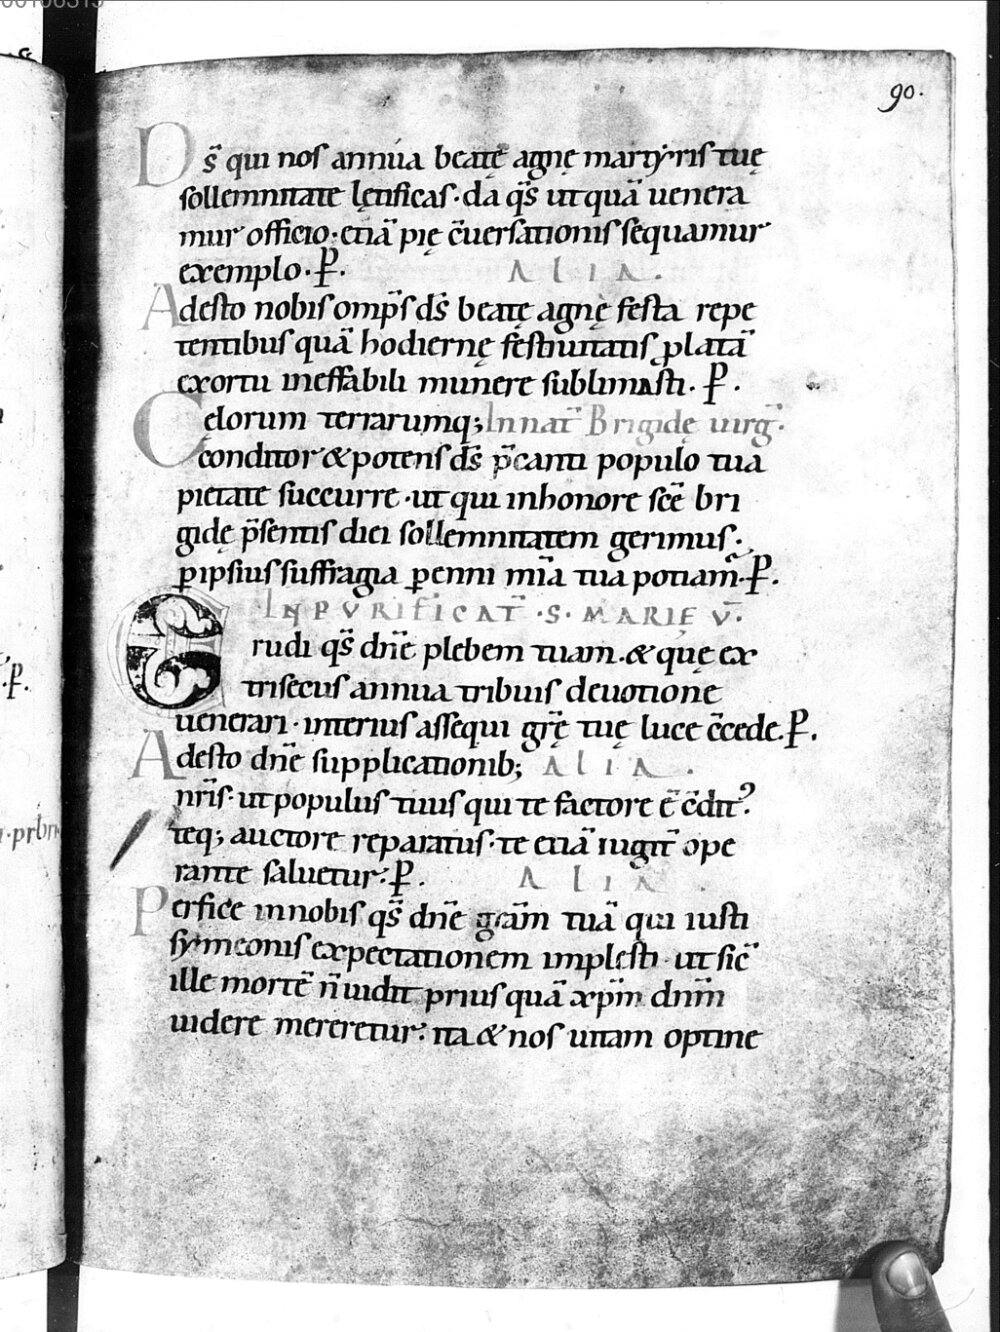 90.
Ds̄ qui nos annua beatę agnę martyris tuę
sollemnitate lętificas· da qs̄ ut quā uenera
mur officio· etiā pię c̄uersationis sequamur
exemplo· P̄. ALIA.
Adesto nobis omp̄s ds̄ beatę agnę festa repe
tentibus quā hodiernę festiuitatis ꝓlatā
exortu ineffabili munere sublimasti. P̄.
Celorum terrarumq; In nat̄ Brigidę uirḡ.
conditor & potens ds̄ p̄canti populo tua
pietate succurre· ut qui in honore scē bri
gidę p̄sentis diei sollemnitatem gerimus·
ꝑ ipsius suffragia ꝑenni mīa tua potiam̄· P̄.
IN PVRIFICAT̄ ·S· MARIĘ V̄.
Erudi qs̄ dn̄e plebem tuam· & quę ex
trisecus annua tribuis deuotione
uenerari· interius assequi gr̄ę tuę luce c̄cede. P̄.
Adesto dn̄e supplicationib; ALIA.
nr̄is· ut populus tuus qui te factore ē c̄dit?
teq; auctore reparatus· te etiā iugit̄ ope
rante saluetur· P̄. ALIA.
Perfice in nobis qs̄ dn̄e gr̄am tuā qui iusti
symeonis expectationem implesti· ut sic̄
ille mortē n̄ uidit prius quā xp̄m dnm̄
uidere mereretur· ita & nos uitam optine